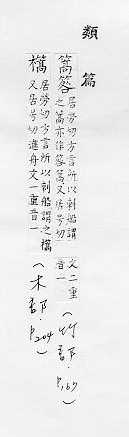 類篇
篙
居勞切方言所以刺船謂
之篙亦作篙又居号切
文二重
音一
(竹部 P.169)
㰏
居勞切方言所以刺船謂之㰏
又居号切進舟文一重音一
(木部 P.204)